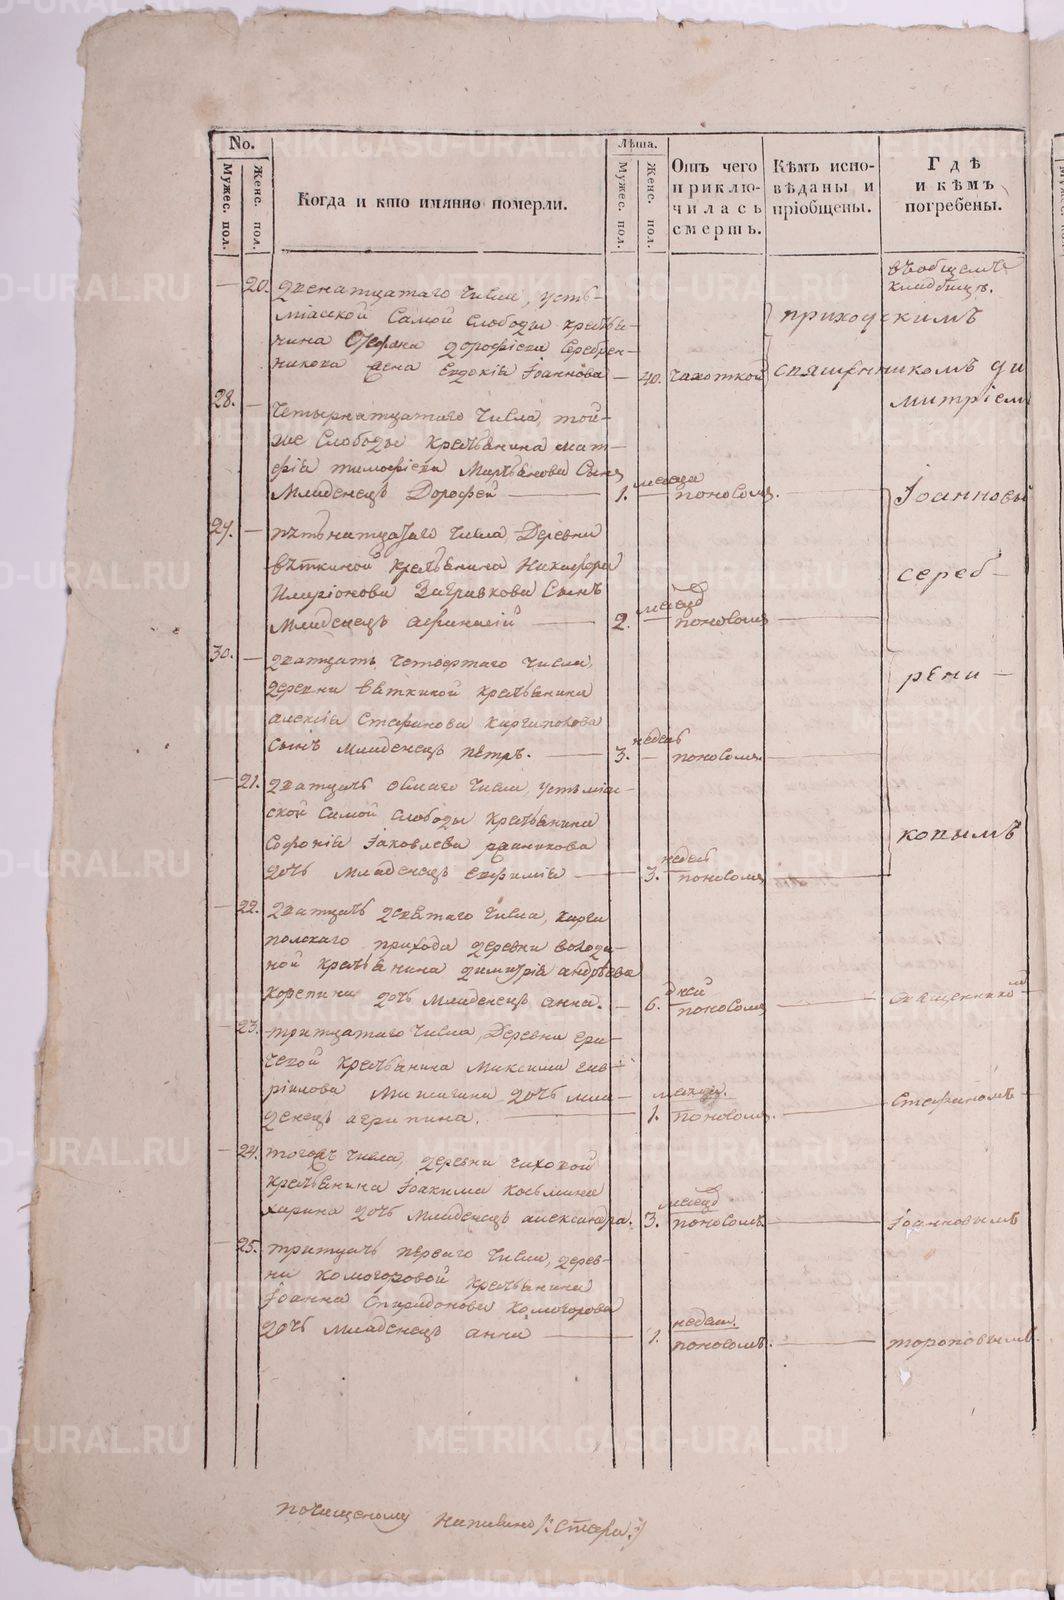 No.
Мужес. пол.
Женс. пол.
Когда и кто имянно померли.
Лѣта.
Мужес. пол.
Женс. пол.
Отъ чего приклю-чилась смерть.
Кѣмъ испо-вѣданы и пріобщены.
Гдѣ и кѣмъ погребены.
въ общемъ
кладбищѣ.
20. Двенатцатаго числа, усть-
міаской самой слободы крестья-
нина Стефана Дорофѣева Серебрен-
никова жена Евдокія Іоаннова — 40. чахоткой
приходскимъ
священникомъ Ди
митріем
28. Четырнатцатаго числа, той-
же слободы крестьянина Мат-
фія Тимофѣева Мартьянова сынъ
младенецъ Дорофей — 1. месеца поносомъ.
Іоанновы
29. пятьнатцатаго числа, Деревни
вѣткиной крестьянина Никифора
Иларіонова сынъ
младенецъ Афанасій — 2. месец поносомъ
сереб-
30. — дватцать четвертаго числа,
деревни вяткиной крестьянина
Алексія Стефанова Каргаполова
сынъ младенецъ Петръ. — 3. недель поносомъ.
рени-
21. дватцать осмаго числа, устьміа-
ской самой слободы крестьянина
Софонія Іаковлева
дочь младенецъ Евфимія — 3. недель поносомъ
ковымъ
22. дватцать девятаго числа, карга
польскаго прихода деревни володи-
ной крестьянина Димитрія Андрѣева
Корепина дочь младенецъ Анна. — 6. дней поносомъ
священником
23. тритцатаго числа, Деревни
крестьянина Максима Гав-
ріилова дочь мла-
денецъ Агрипина. — 1. месец. поносомъ.
Стефаномъ
24. тогожъ числа, деревни
крестьянина Іоакима Косьмина
Харина дочь младенецъ Александра. 3. месец поносомъ.
Іоанновымъ
25. тритцать перваго числа, дерев-
ни Комогоровой крестьянина
Іоанна Спиридонова Комогорова
дочь младенецъ Анна — 1. недел. поносомъ.
тороповымъ.
почищеному написано /: Стефа :/
METRIKI.GASO-URAL.RU